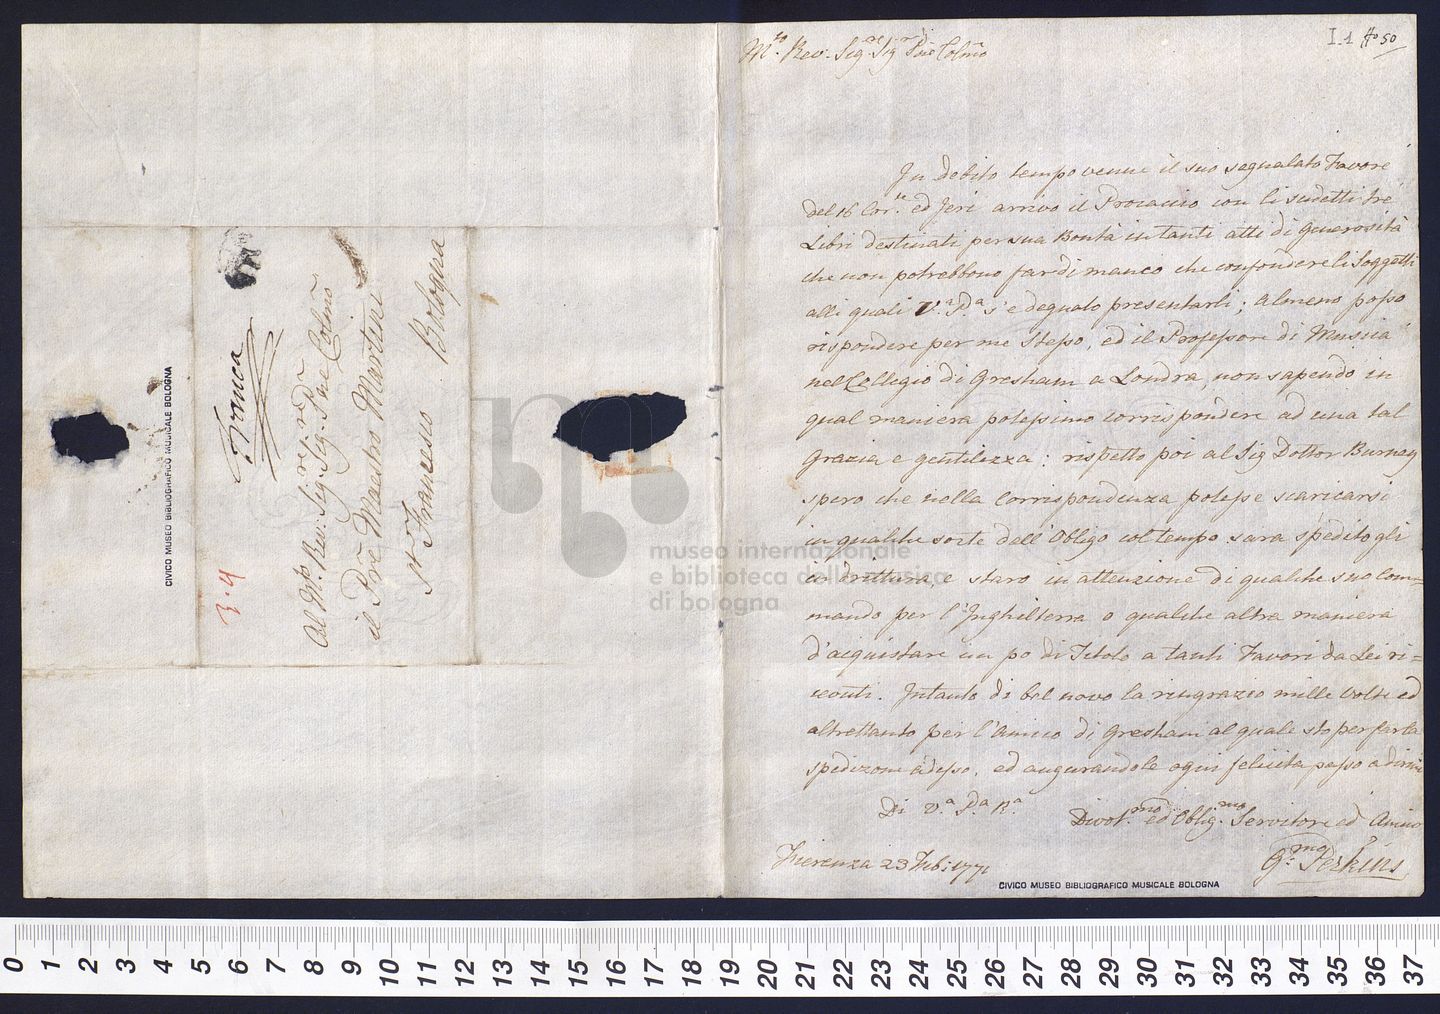 Franca
Al M.to Rev: Sig.re Sig.re P̄ne Colmo
il P̄re Maestro Martini
S.n Francesco Bologna
3-4
CIVICO MUSEO BIBLIOGRAFICO MUSICALE BOLOGNA
I.1 50
M.to Rev. Sig.re Sig.r P̄ne Colmo
In debito tempo venne il suo segnalato Favore
del 16 Cor.te ed Jeri arrivo il Procaccio con li sudetti tre
Libri destinati per sua Bontà in tanti atti di generosità
che non potrebbono far di manco che confondere li Soggetti
alli quali V.a P.a s'è degnato presentarli; almeno posso
rispondere per me stesso, ed il Professore di Musica
nel Collegio di Gresham a Londra, non sapendo in
qual maniera potessimo corrispondere ad una tal
grazia e gentilezza: rispetto poi al Sig Dottor Burney
spero che nella Corrispondenza potesse scaricarsi
in qualche sorte dell'Obligo col tempo sarà spedito gli
a drittura, e staro in attenzione di qualche suo Com=
mando per l'Inghilterra o qualche altra maniera
d'acquistare un po di Titolo a tanti Favori da Lei ri=
ceuti. Intanto di bel novo la ringrazio mille volte ed
altrettanto per l'amico di Gresham al quale sto per farla
spedizione adesso, ed augurandole ogni felicita passo a dirmi
Di V.a P.a R.a
Divot.mo ed Oblig.mo Servitore ed Amico
G.mo Perkins
Fierenza 23 1771
CIVICO MUSEO BIBLIOGRAFICO MUSICALE BOLOGNA
museo internazionale
e biblioteca della musica
di bologna
0 1 2 3 4 5 6 7 8 9 10 11 12 13 14 15 16 17 18 19 20 21 22 23 24 25 26 27 28 29 30 31 32 33 34 35 36 37